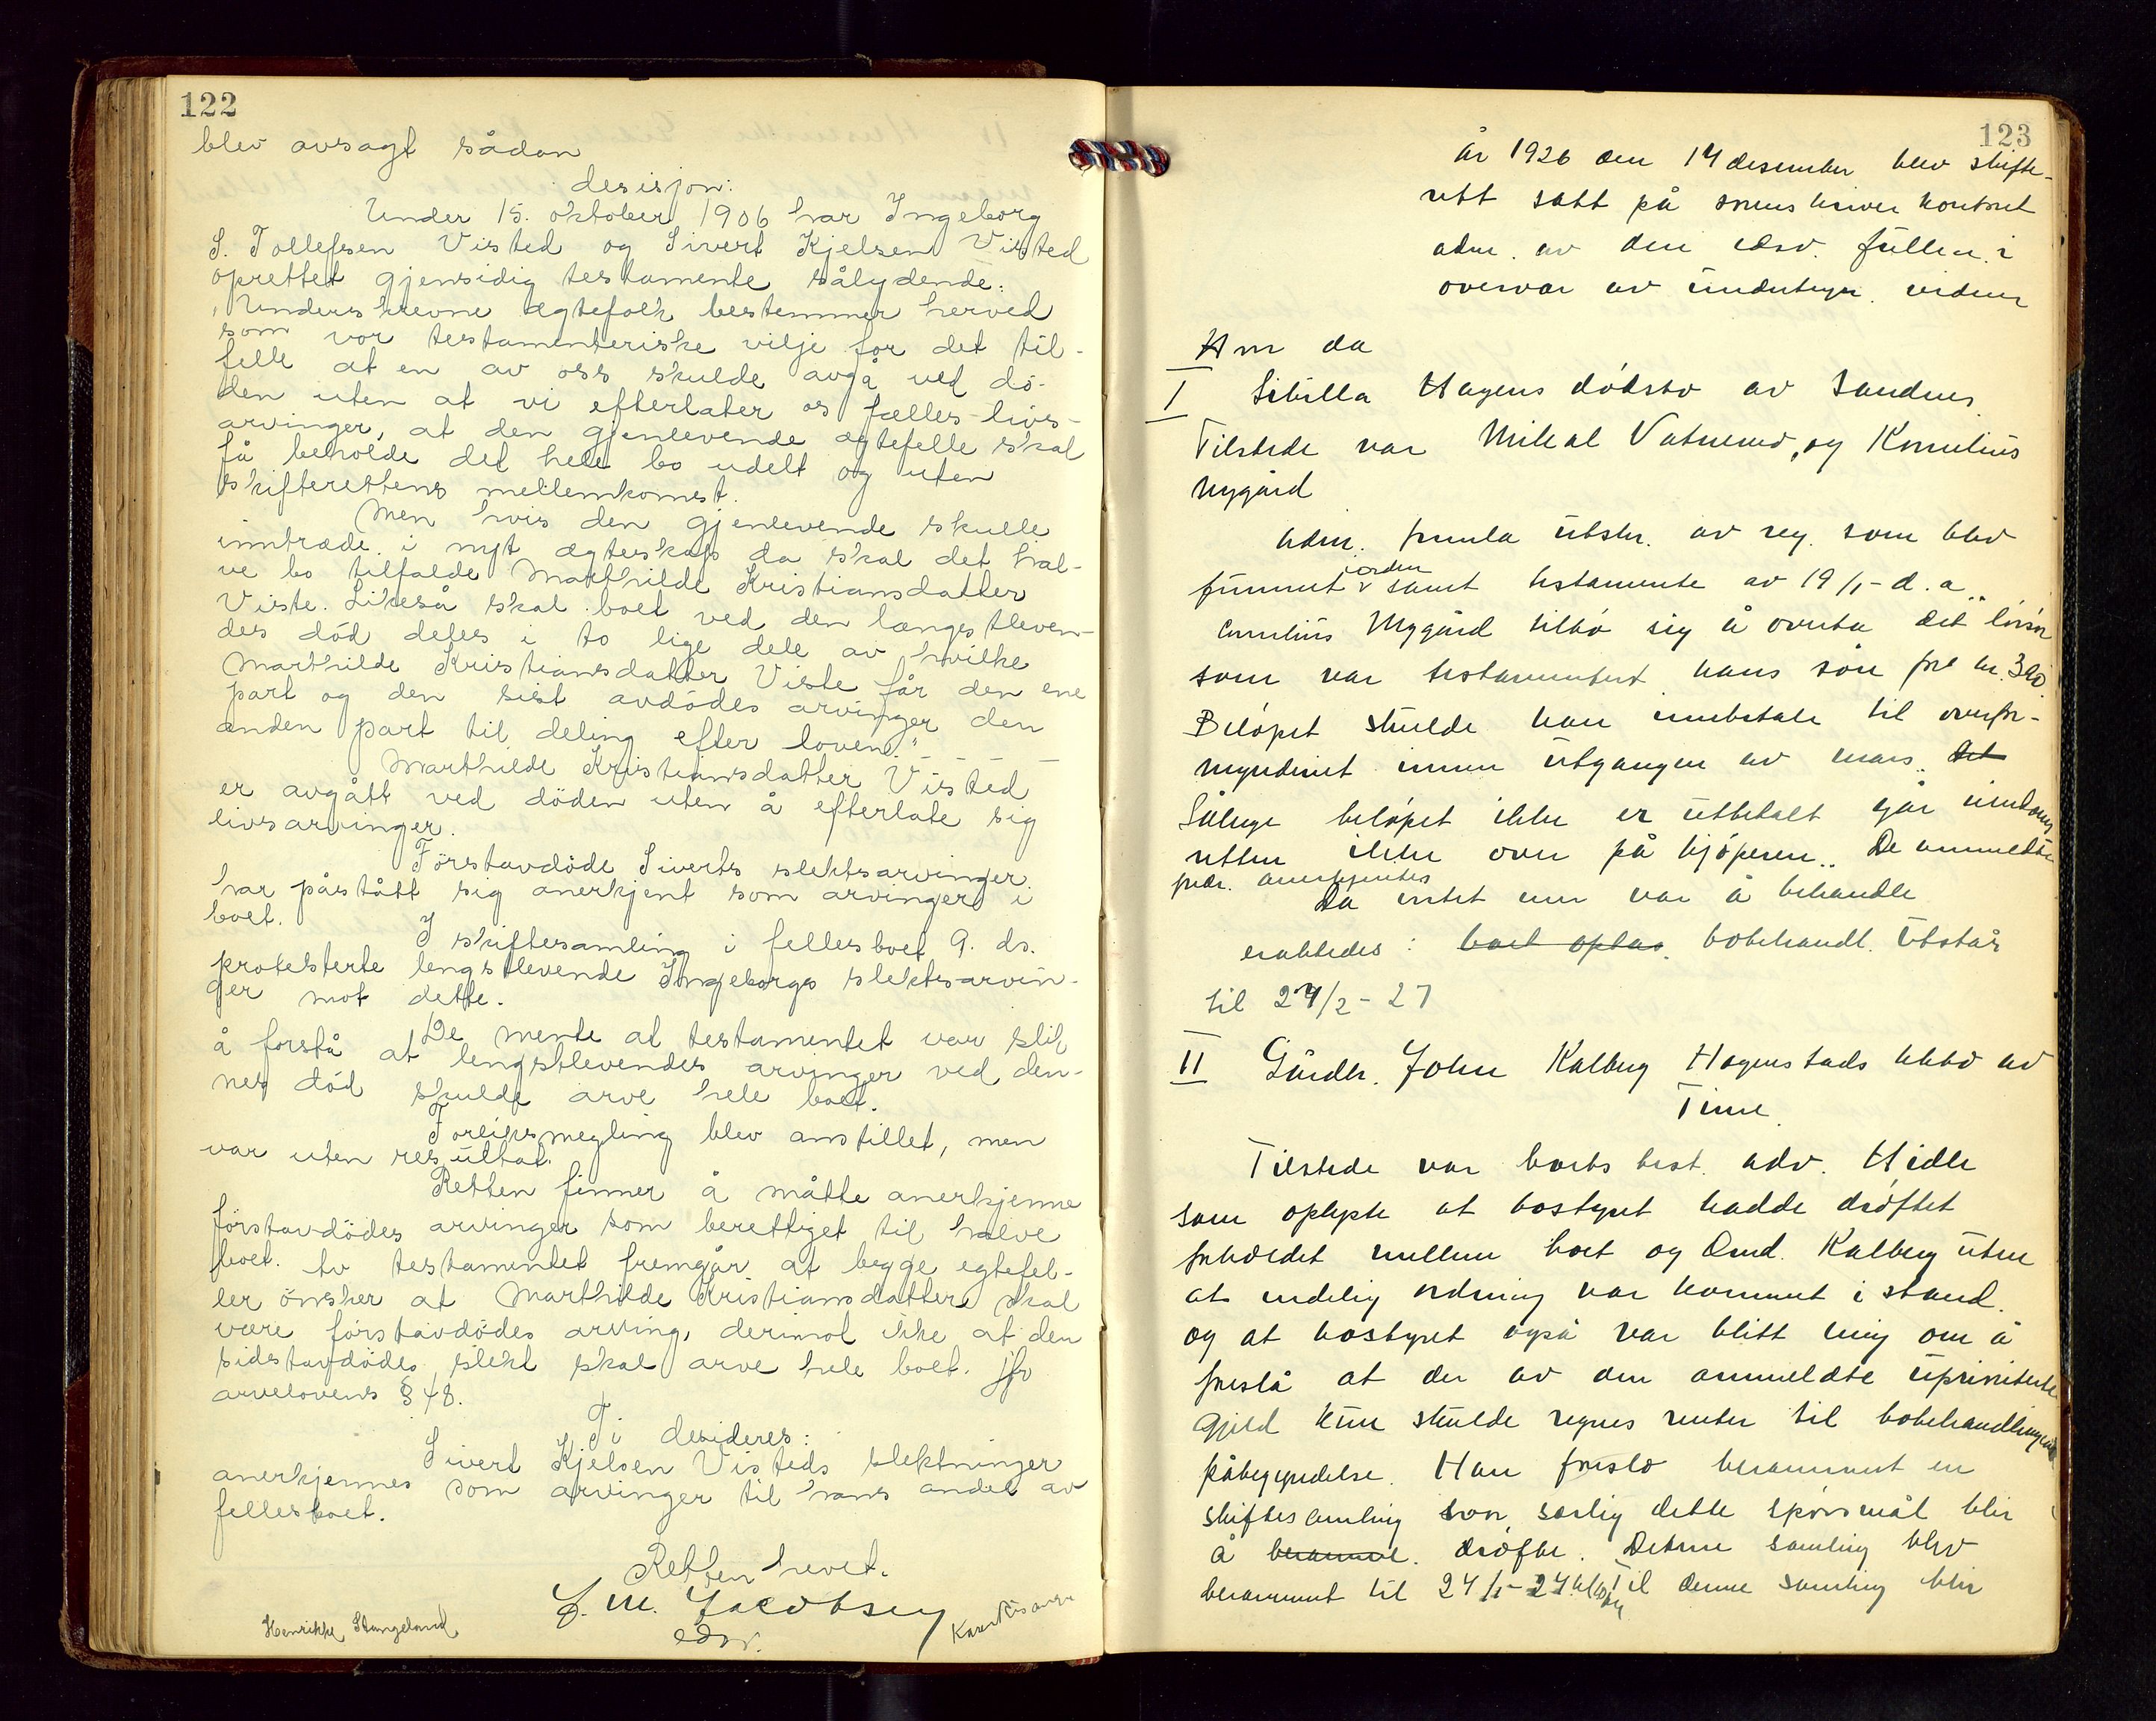 122
blev avsagt sådan
desisjon:
Under 15. oktober 1906 har Ingeborg
S. Tollefsen Visted og Sivert Kjelsen Visted
oprettet gjensidig testamente sålydende:
"Underskrevne ægtefolk bestemmer herved
som vor testamenteriske vilje for det til-
felle at en av oss skulde avgå ved dö-
den uten at vi efterlater os fælles livs-
arvinger, at den gjenlevende ægtefelle skal
få beholde det hele bo udelt og uten
skifterettens mellemkomst.
Men hvis den gjenlevende skulle
inntræde i nyt ægteskap da skal det hal-
ve bo tilfalde Marthilde Kristiansdatter
Viste. Likeså skal boet ved den længstleven-
des död deles i to lige dele av hvilke
Marthilde Kristiansdatter Viste får den ene
part og den sist avdödes arvinger den
anden part til deling efter loven."
Marthilde Kristiansdatter Visted
er avgått ved döden uten å efterlate sig
livsarvinger.
Förstavdöde Siverts slektsarvinger
har påstått sig anerkjent som arvinger i
boet.
I skiftesamling i fellesboet 9. ds.
protesterte lengstlevende Ingeborgs slektsarvin-
ger mot dette.
De mente at testamentet var slik
å forstå at lengstlevendes arvinger ved den-
nes död skulde arve hele boet.
Forliksmegling blev anstillet, men
var uten resultat.
Retten finner å måtte anerkjenne
förstavdödes arvinger som berettiget til halve
boet. Av testamentet fremgår at begge egtefel-
ler önsker at Marthilde Kristiansdatter skal
være förstavdödes arving, derimot ikke at den
sidstavdödes slekt skal arve hele boet. jfr
arvelovens § 48.
Ti desideres:
Sivert Kjelsen Visteds slektninger
anerkjennes som arvinger til hans andel av
fellesboet.
Retten hevet.
J. M. Jacobsen
edsv.
Henrikke Stangeland
123
År 1926 den 14 desember blev skifte-
rett satt på sorenskriver kontoret
adm. av den edsv. fullm. i
overvær av undertegn. vidner
Hvor da
I Sibilla Hagens dödsbo av Sandnes
Tilstede var Mikal Vatnemo, og Kornelius
Nygård
Adm. fremla utskr. av reg. som blev
funnet i orden samt testamente av 19/1- d.a.
Cornelius Nygård tilbö sig å overta det lösöre
som var testamentert hans sön for kr. 320.
Belöpet skulde han innbetale til overfor-
mynderiet innen utgangen av mars. Det
Sålenge belöpet ikke er utbetalt går eiendoms
retten ikke over på kjöperen. De anmeldte
fordr. anerkjentes
Da intet mer var å behandle
eraktedes: boet optas bobehandl. utstår
til 24/2-27
II Gårdbr. John Kalberg Hagenstads kkbo av
Time.
Tilstede var boets best. adv. Hidle
som oplyste at bostyret hadde dröftet
forholdet mellem boet og Kalberg uten
at endelig ordning var kommet i stand
og at bostyret også var blitt enig om å
foreslå at der av den anmeldte upriviterte
gjeld kun skulde regnes renter til bobehandlingens
påbegyndelse. Han foreslo berammet en
skiftesamling hvor særlig dette spörsmål blir
å beramme. dröfte. Denne samling blev
berammet til 24/1-27 kl. 10 Til denne samling blir